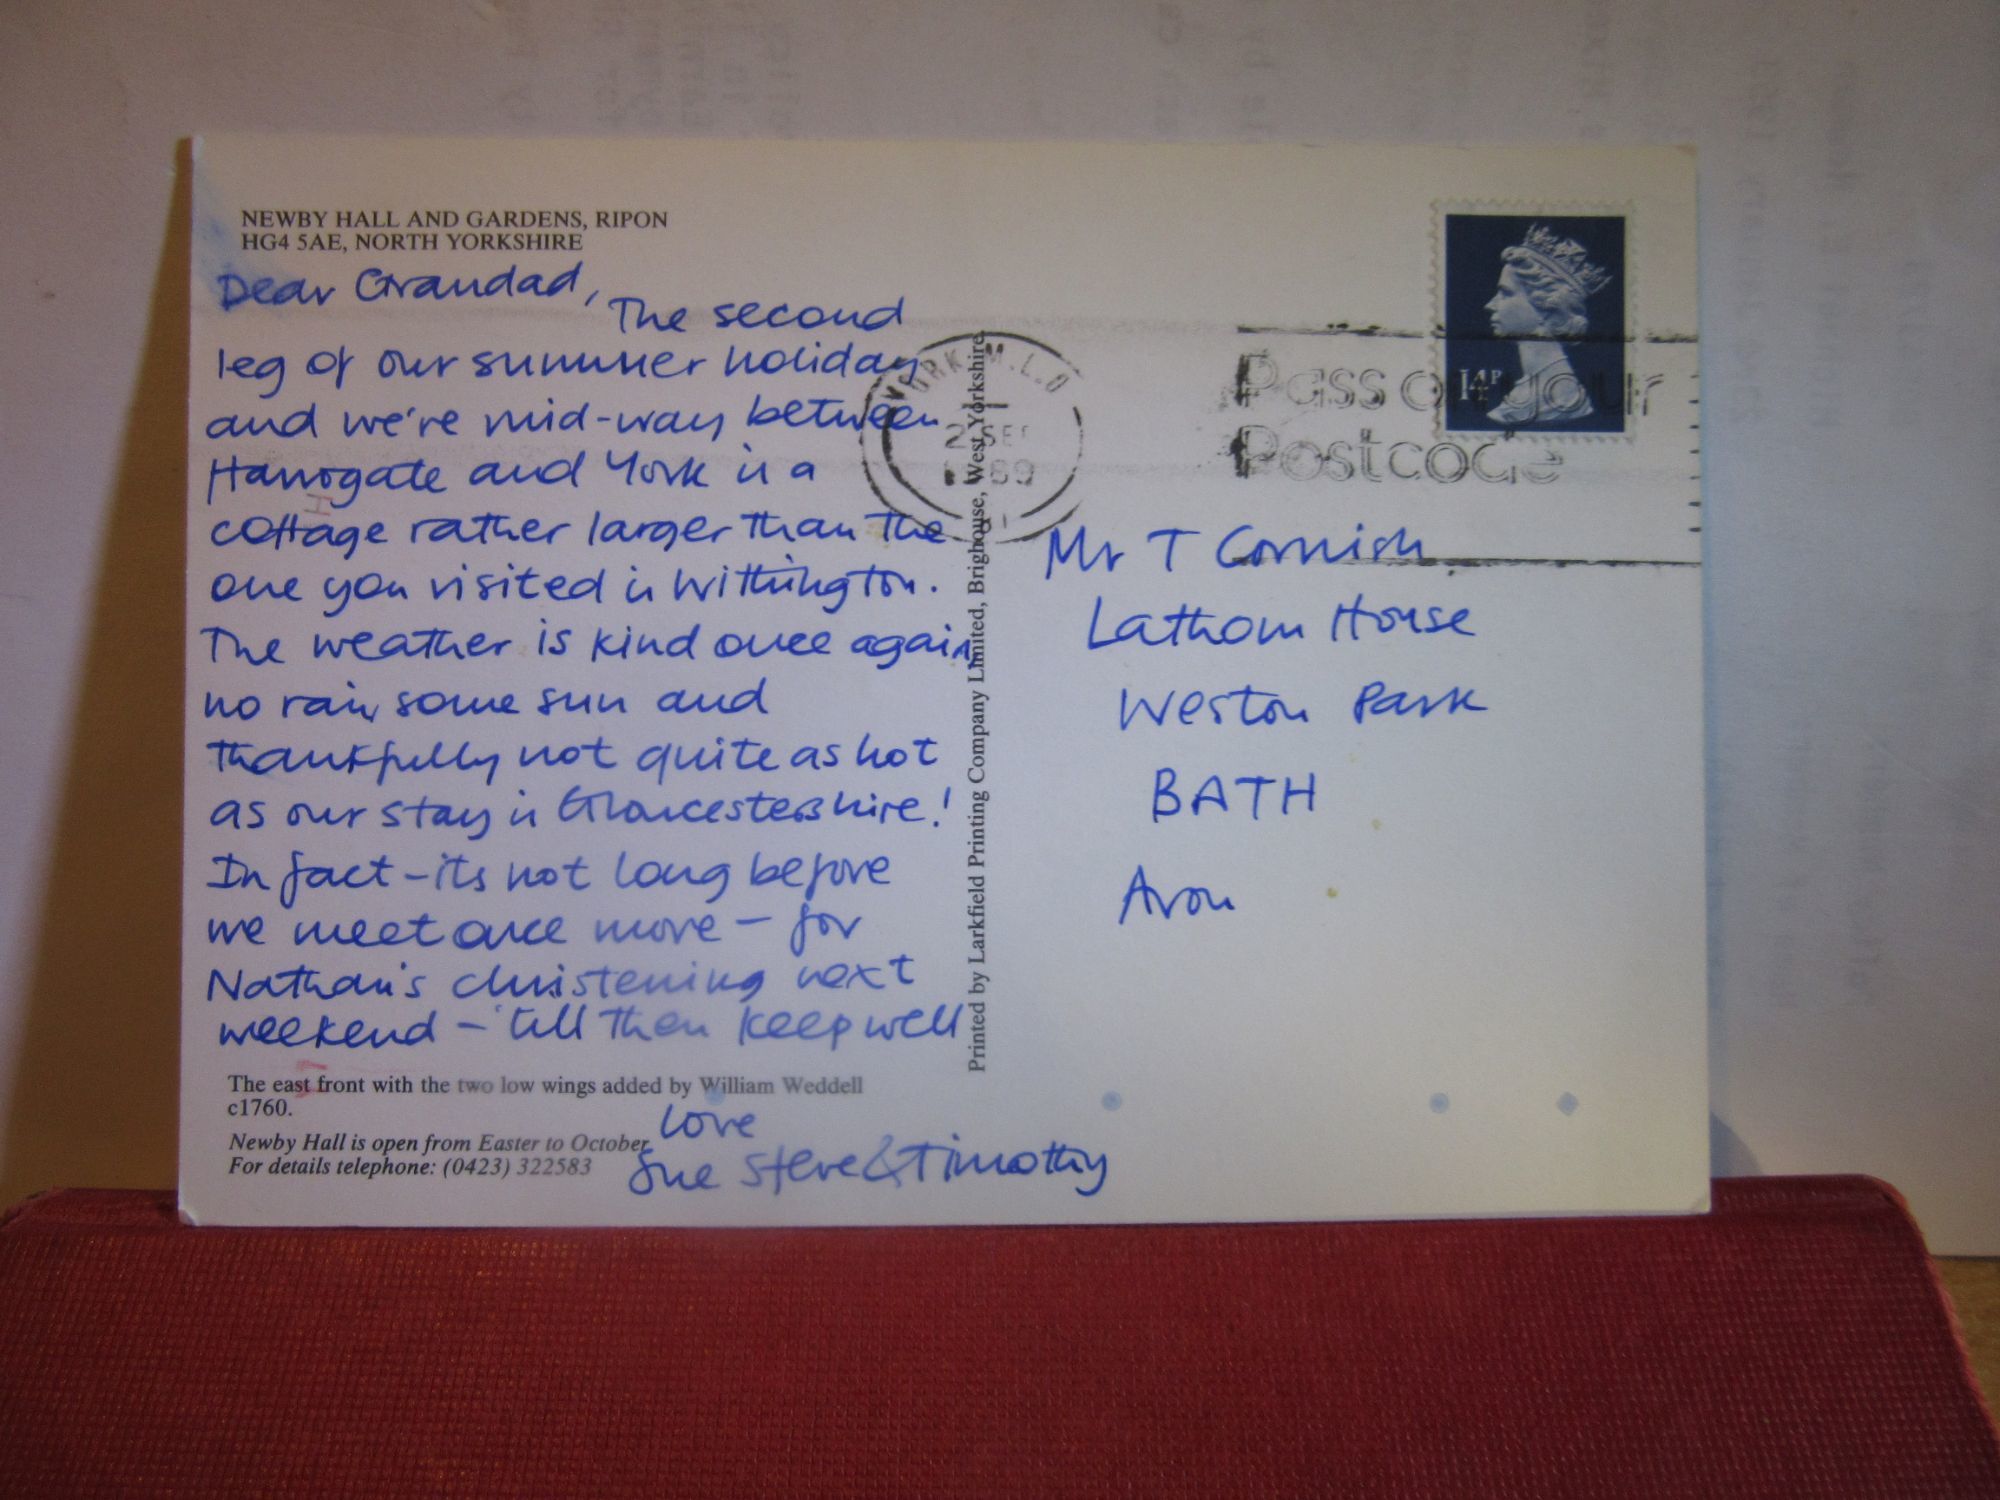 NEWBY HALL AND GARDENS, RIPON
HG4 5AE, NORTH YORKSHIRE
Dear Grandad,
The second
leg of our summer holiday
and we're mid-way between
Harrogate and York in a
cottage rather larger than the
one you visited in Withington.
The weather is kind once again,
no rain, some sun and
thankfully not quite as hot
as our stay in Gloucestershire!
In fact - its not long before
we meet once more - for
Nathan's christening next
weekend - 'till then keep well
The east front with the two low wings added by William Weddell
c1760.
Newby Hall is open from Easter to October
For details telephone: (0423) 322583
Love
Sue Steve & Timothy
Printed by Larkfield Printing Company Limited, Brighouse, West Yorkshire
YORK M.L.O
2 SEP
1989
14P
Pass on your
Postcode
Mr T Cornish
Lathom House
Weston Park
BATH
Avon